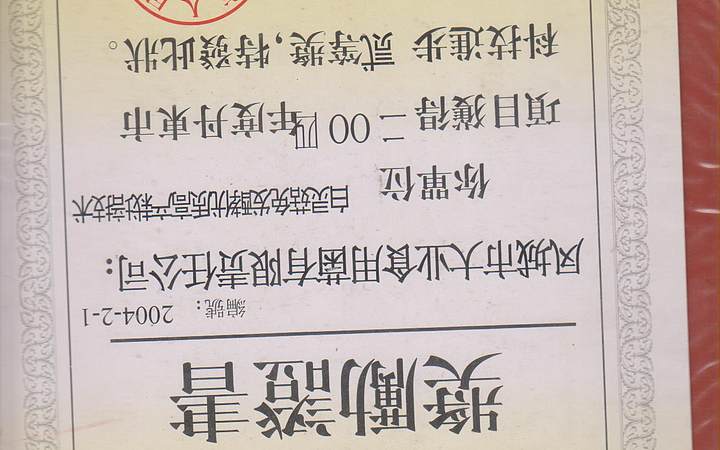 獎勵證書
編號：2004-2-1
凤城市大业食用菌有限责任公司：
你單位 白灵菇免发酵优质高产栽培技术
項目獲得二00四年度丹東市
科技進步 貳等獎，特發此狀。